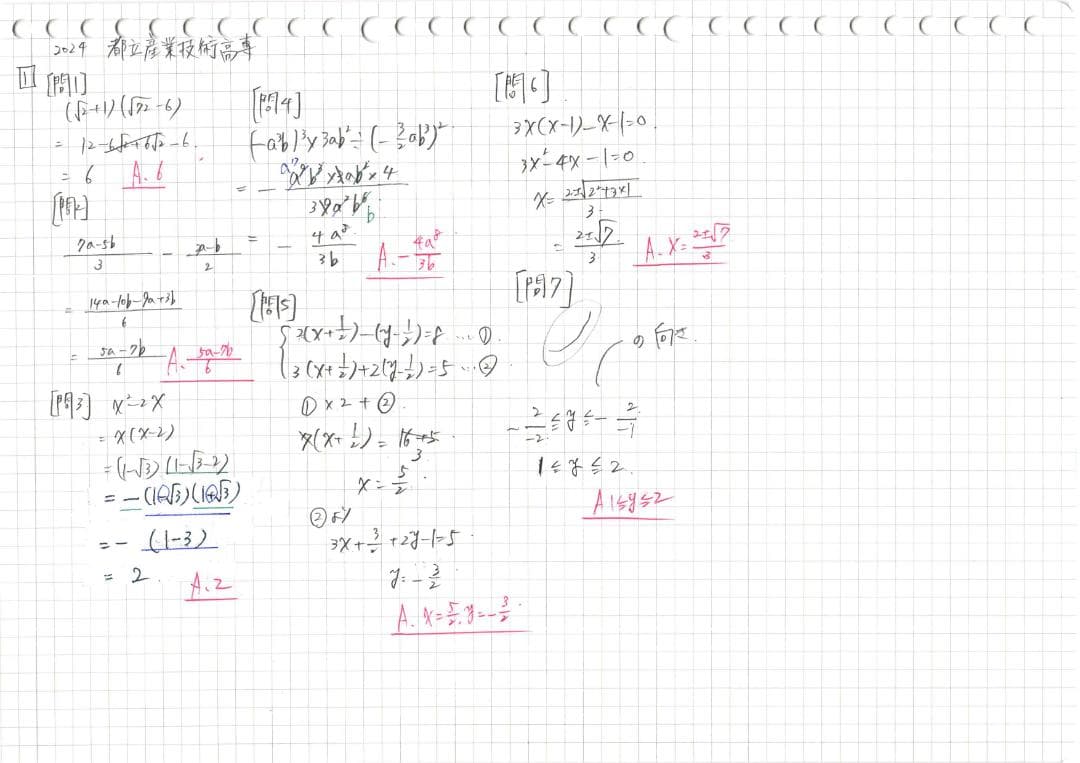 2024 都立産業技術高専
1
[問1]
(√2+1)(√72-6)
= 12-6√2+6√2-6.
= 6 A.6
[問2]
7a-5b/3 - 3a-b/2
= 14a-10b-9a+3b/6
= 5a-7b/6 A. 5a-7b/6
[問3] x²-2x
= x(x-2)
= (1-√3)(1-√3-2)
= -(1-√3)(1+√3)
= -(1-3)
= 2. A.2
[問4]
(-a³b)³×3ab²÷(-3/2ab³)²
= - a⁹b³×3ab²×4/3
= - 4a⁸/3b A.-4a⁸/3b
[問5]
2(x+1/2)-(y-1/2)=8 …①.
3(x+1/2)+2(y-1/2)=5 …②.
①×2+②.
7(x+1/2)=16+5.
3
x=5/2.
②より
3x+3/2+2y-1=5.
y=-3/2
A. x=5/2. y=-3/2.
[問6]
3x(x-1)-x-1=0.
3x²-4x-1=0.
x=2±√2²+3×1/3
= 2±√7/3. A. x=2±√7/3
[問7]
-2/-2≦y≦-2/-1
1≦y≦2.
A 1≦y≦2